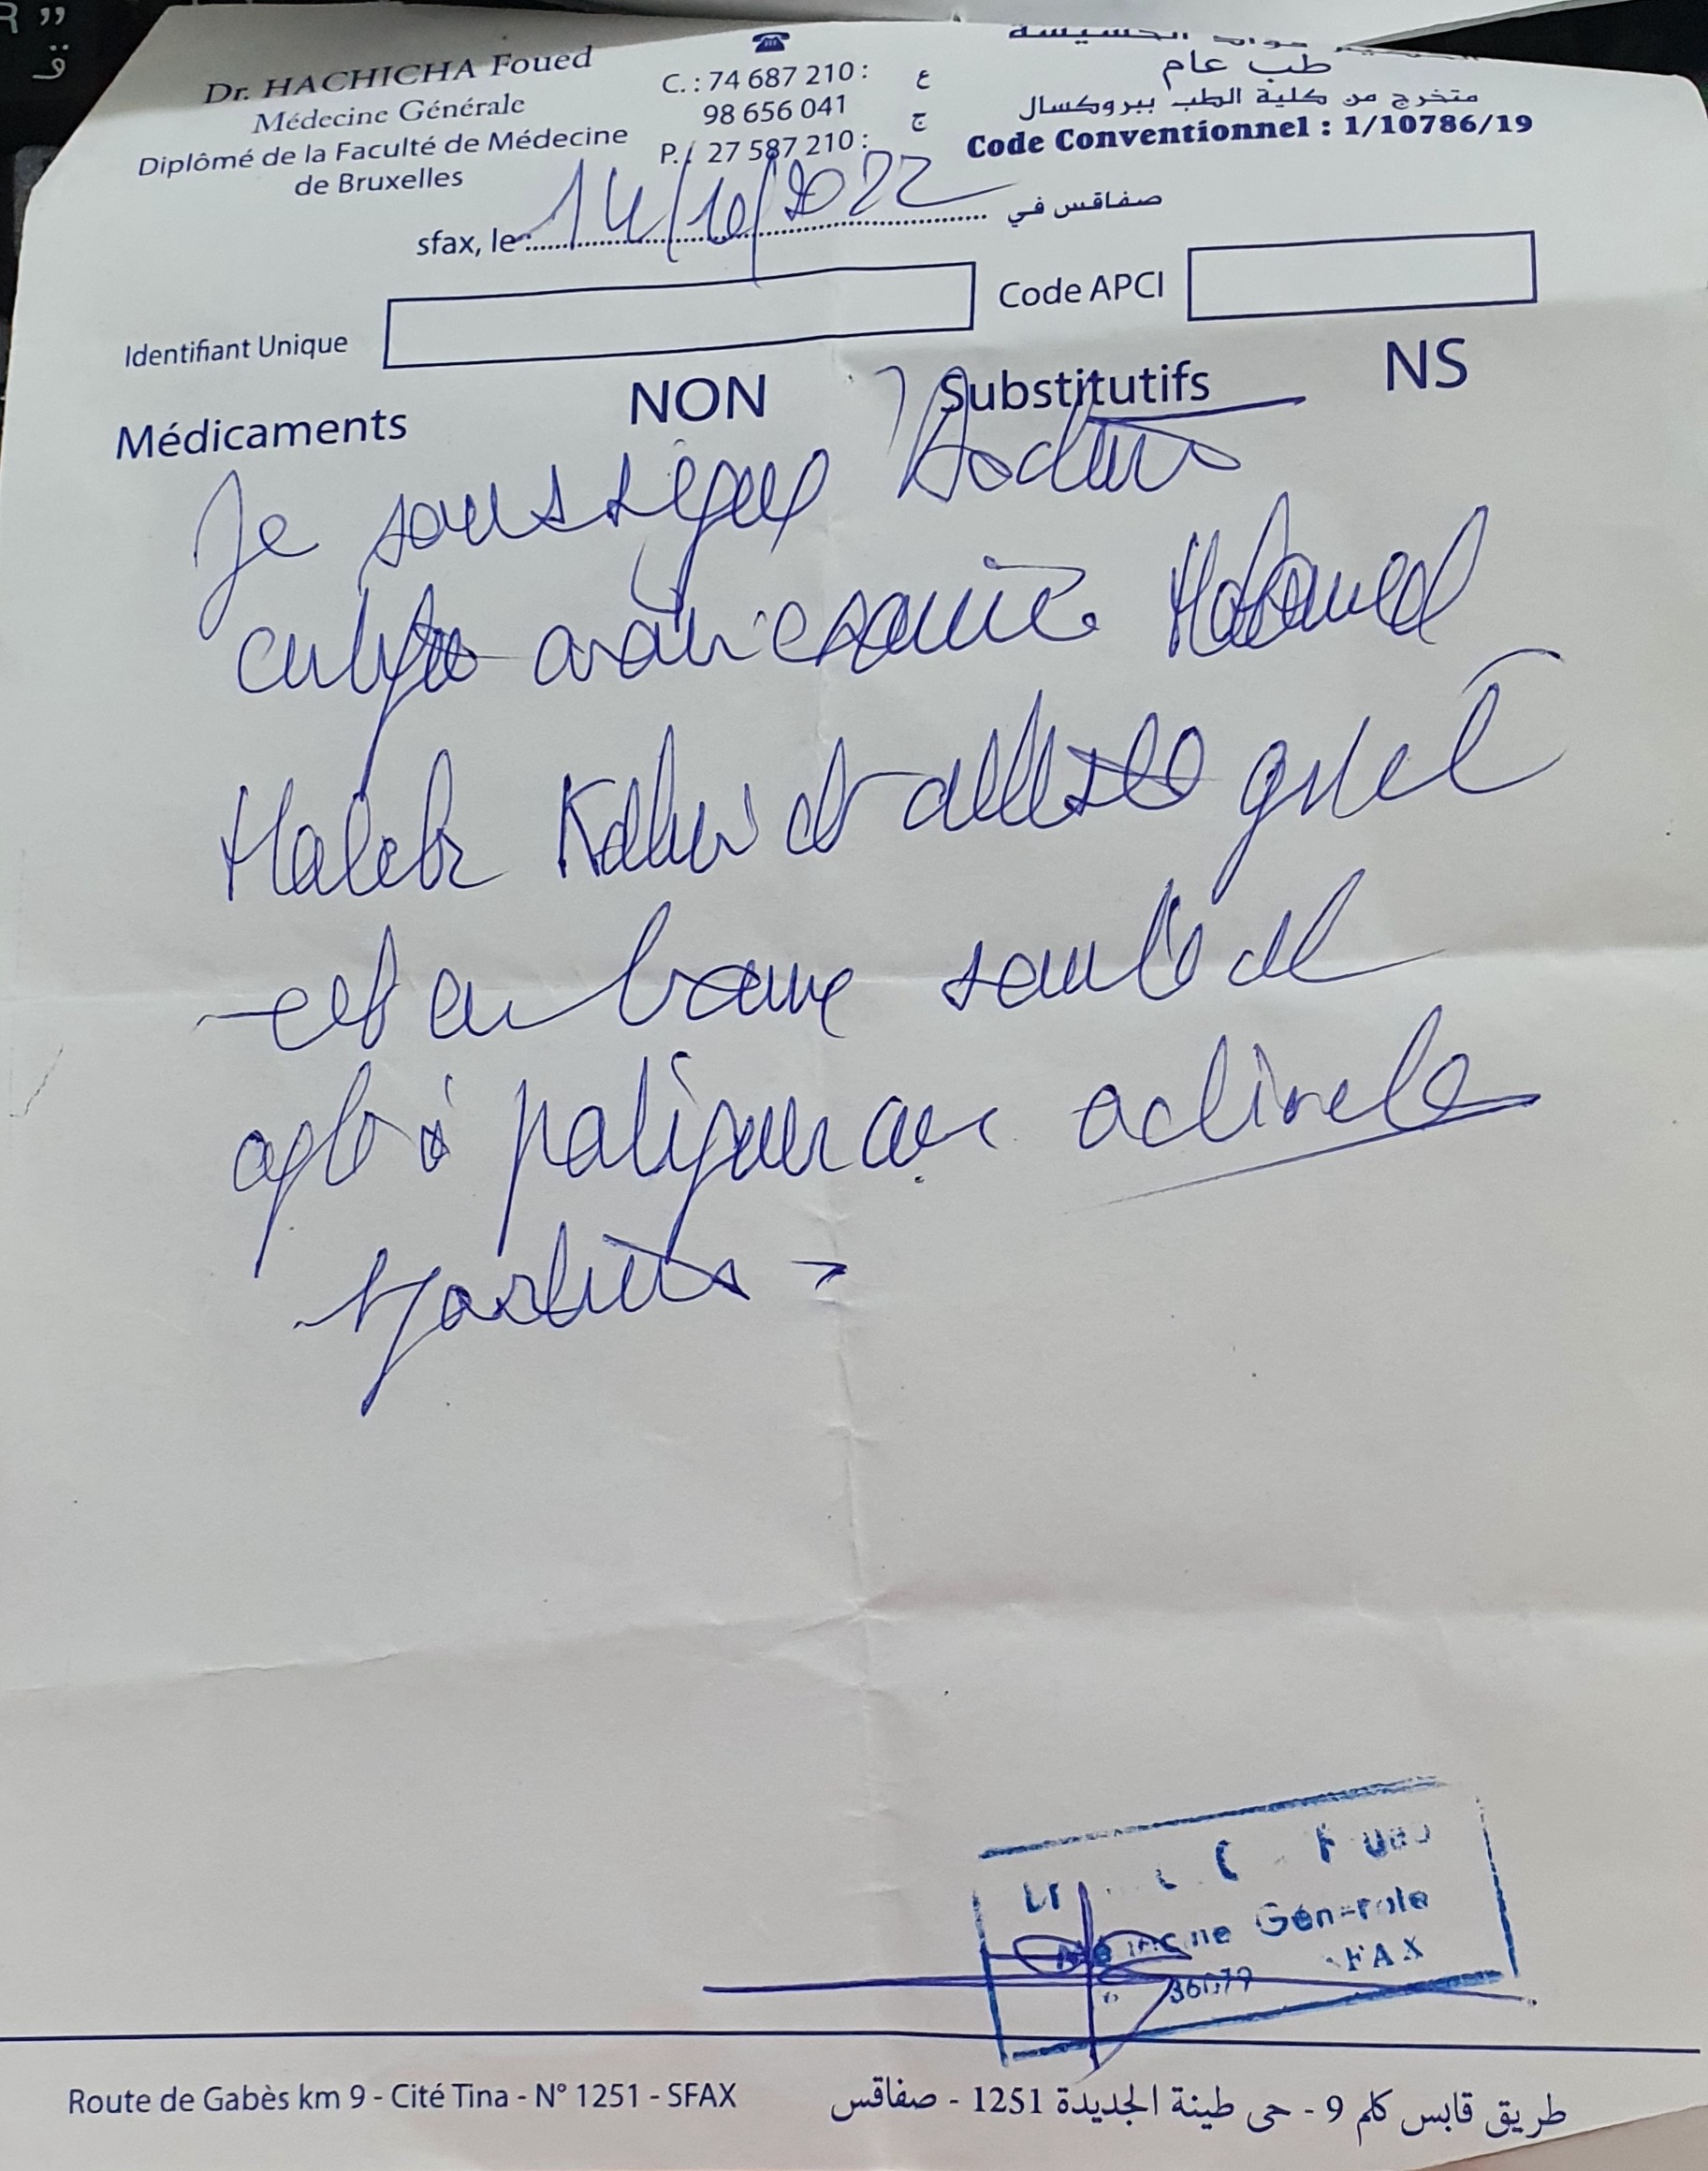 Dr. HACHICHA Foued
Médecine Générale
Diplômé de la Faculté de Médecine
de Bruxelles
C. : 74 687 210 : ع
98 656 041 ج
P. : 27 587 210 :
طب عام
متخرج من كلية الطب ببروكسال
Code Conventionnel : 1/10786/19
sfax, le : 14/10/2022 صفاقس في
Identifiant Unique
Code APCI
Médicaments NON Substitutifs NS
Je soussigné Docteur
certifie avoir examiné Mohamed
Habib et atteste qu'il
est en bonne santé et
apte à pratiquer une activité
sportive
Générale
SFAX
Route de Gabès km 9 - Cité Tina - N° 1251 - SFAX
طريق قابس كلم 9 - حي طينة الجديدة 1251 - صفاقس